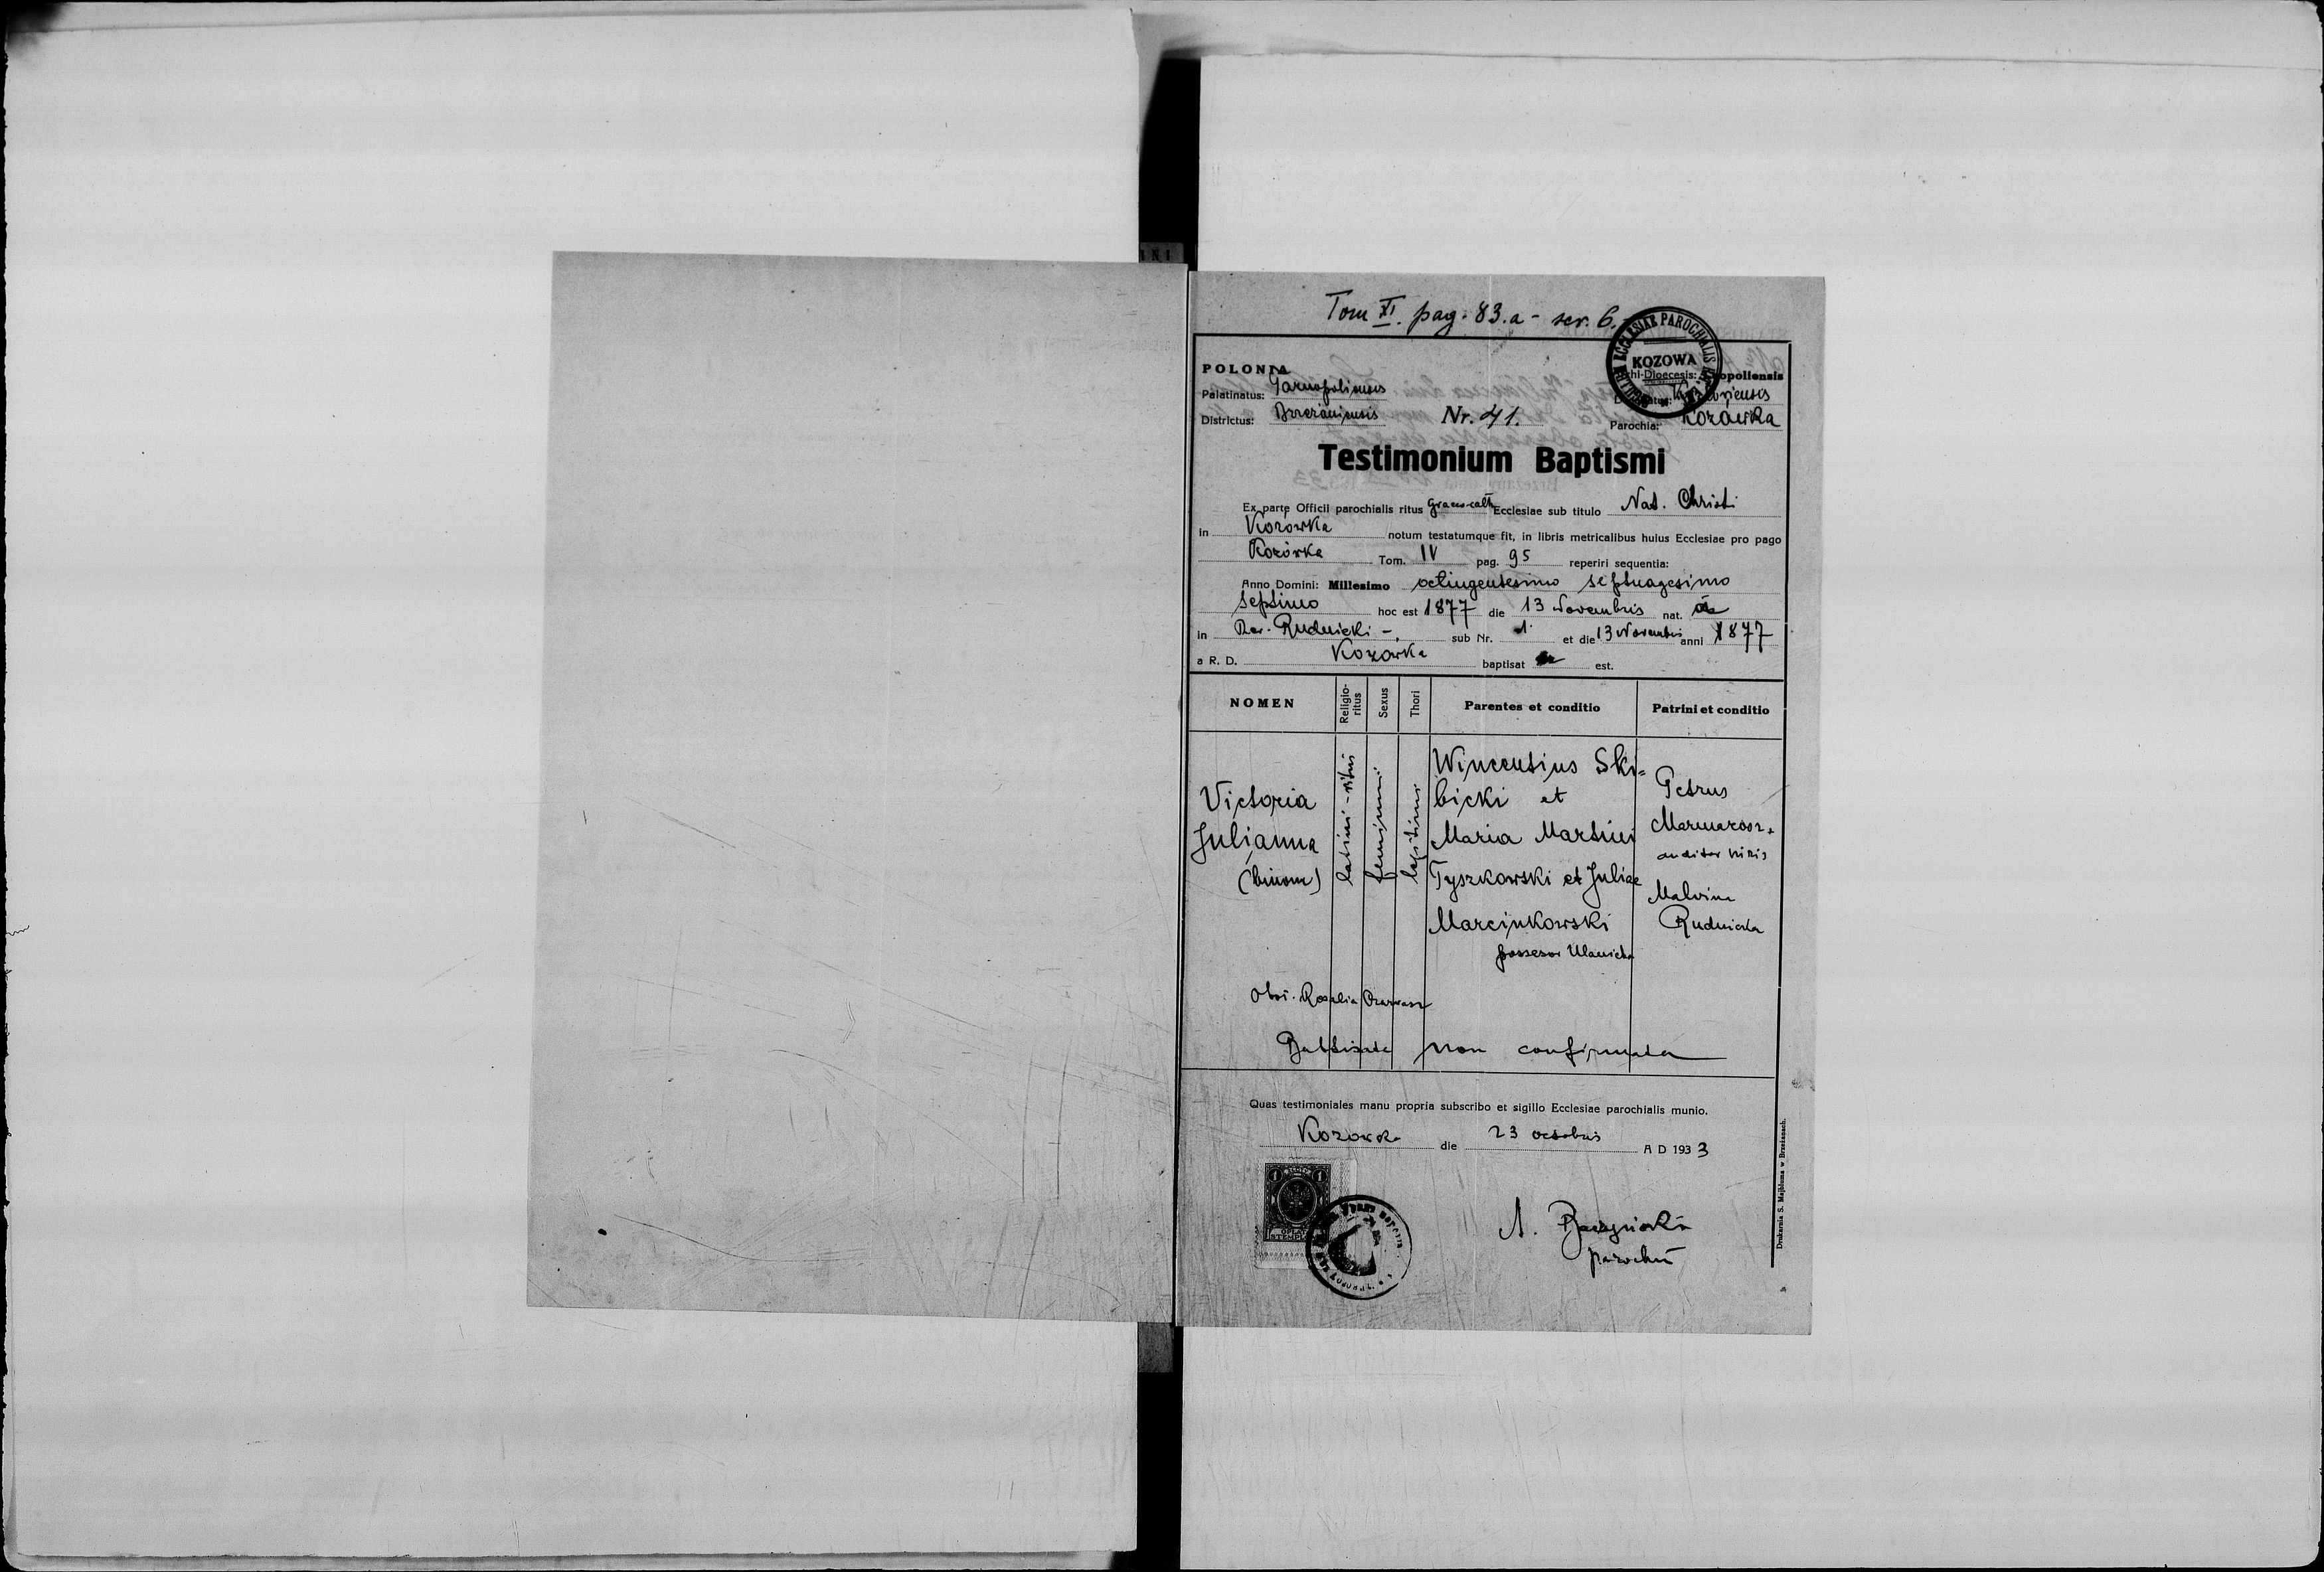 Tom XI. pag. 83.a - ser. 6.
ECCLESIAE PAROCHIALIS
KOZOWA
POLONIA
Palatinatus: Tarnopolinensis
Districtus: Brzezaniensis
Nr. 41.
Parochia: Kozówka
Testimonium Baptismi
Ex parte Officii parochialis ritus graeco-cath Ecclesiae sub titulo Nat. Christi
in Kozowka notum testatumque fit, in libris metricalibus huius Ecclesiae pro pago
Kozówka Tom. IV pag. 95 reperiri sequentia:
Anno Domini: Millesimo octingentesimo septuagesimo
septimo hoc est 1877 die 13 Novembris nat.
in Rev. Rudnicki -, sub Nr. 1 et die 13 Novembris anni 1877
a R. D. Kozowka baptisat est.
NOMEN
Religio-
ritus
Sexus
Thori
Parentes et conditio
Patrini et conditio
Victoria
Julianna
(binom)
latini-ritus
feminini
legitimi
Wincentius Ski=
bicki et
Maria Martini
Tyszkowski et Juliae
Marcinkowski
possesor
Petrus
Malvina
Rudnicka
Obs. Rosalia
Baptisata non confirmata
Quas testimoniales manu propria subscribo et sigillo Ecclesiae parochialis munio.
Kozowka die 23 octobris A D 1933
parochus
Drukarnia S. Majbluma w Brzeżanach.